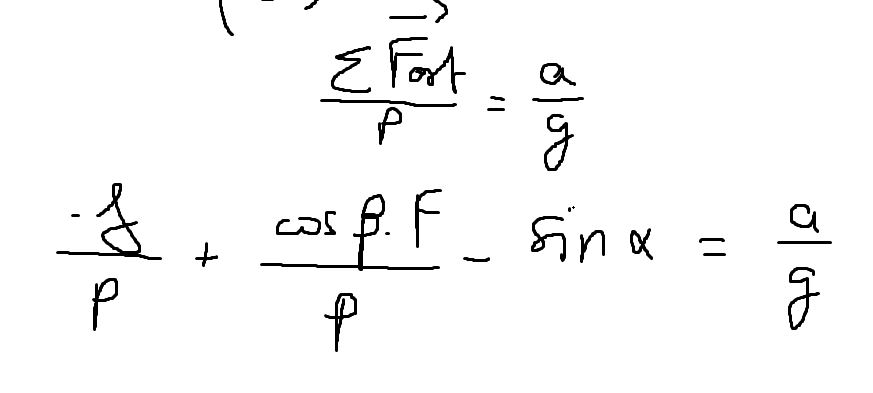 Σ F⃗ext / P = a / g
-f / P + cos β. F / P - sin α = a / g